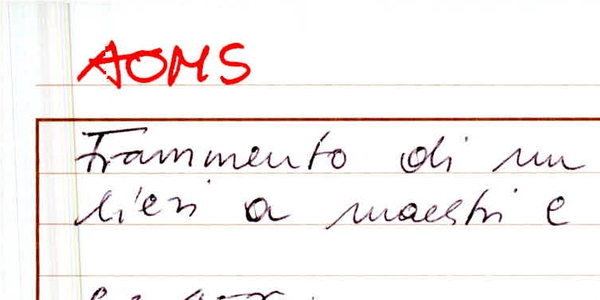 AOMS
Frammento di un
lieri a maestri e